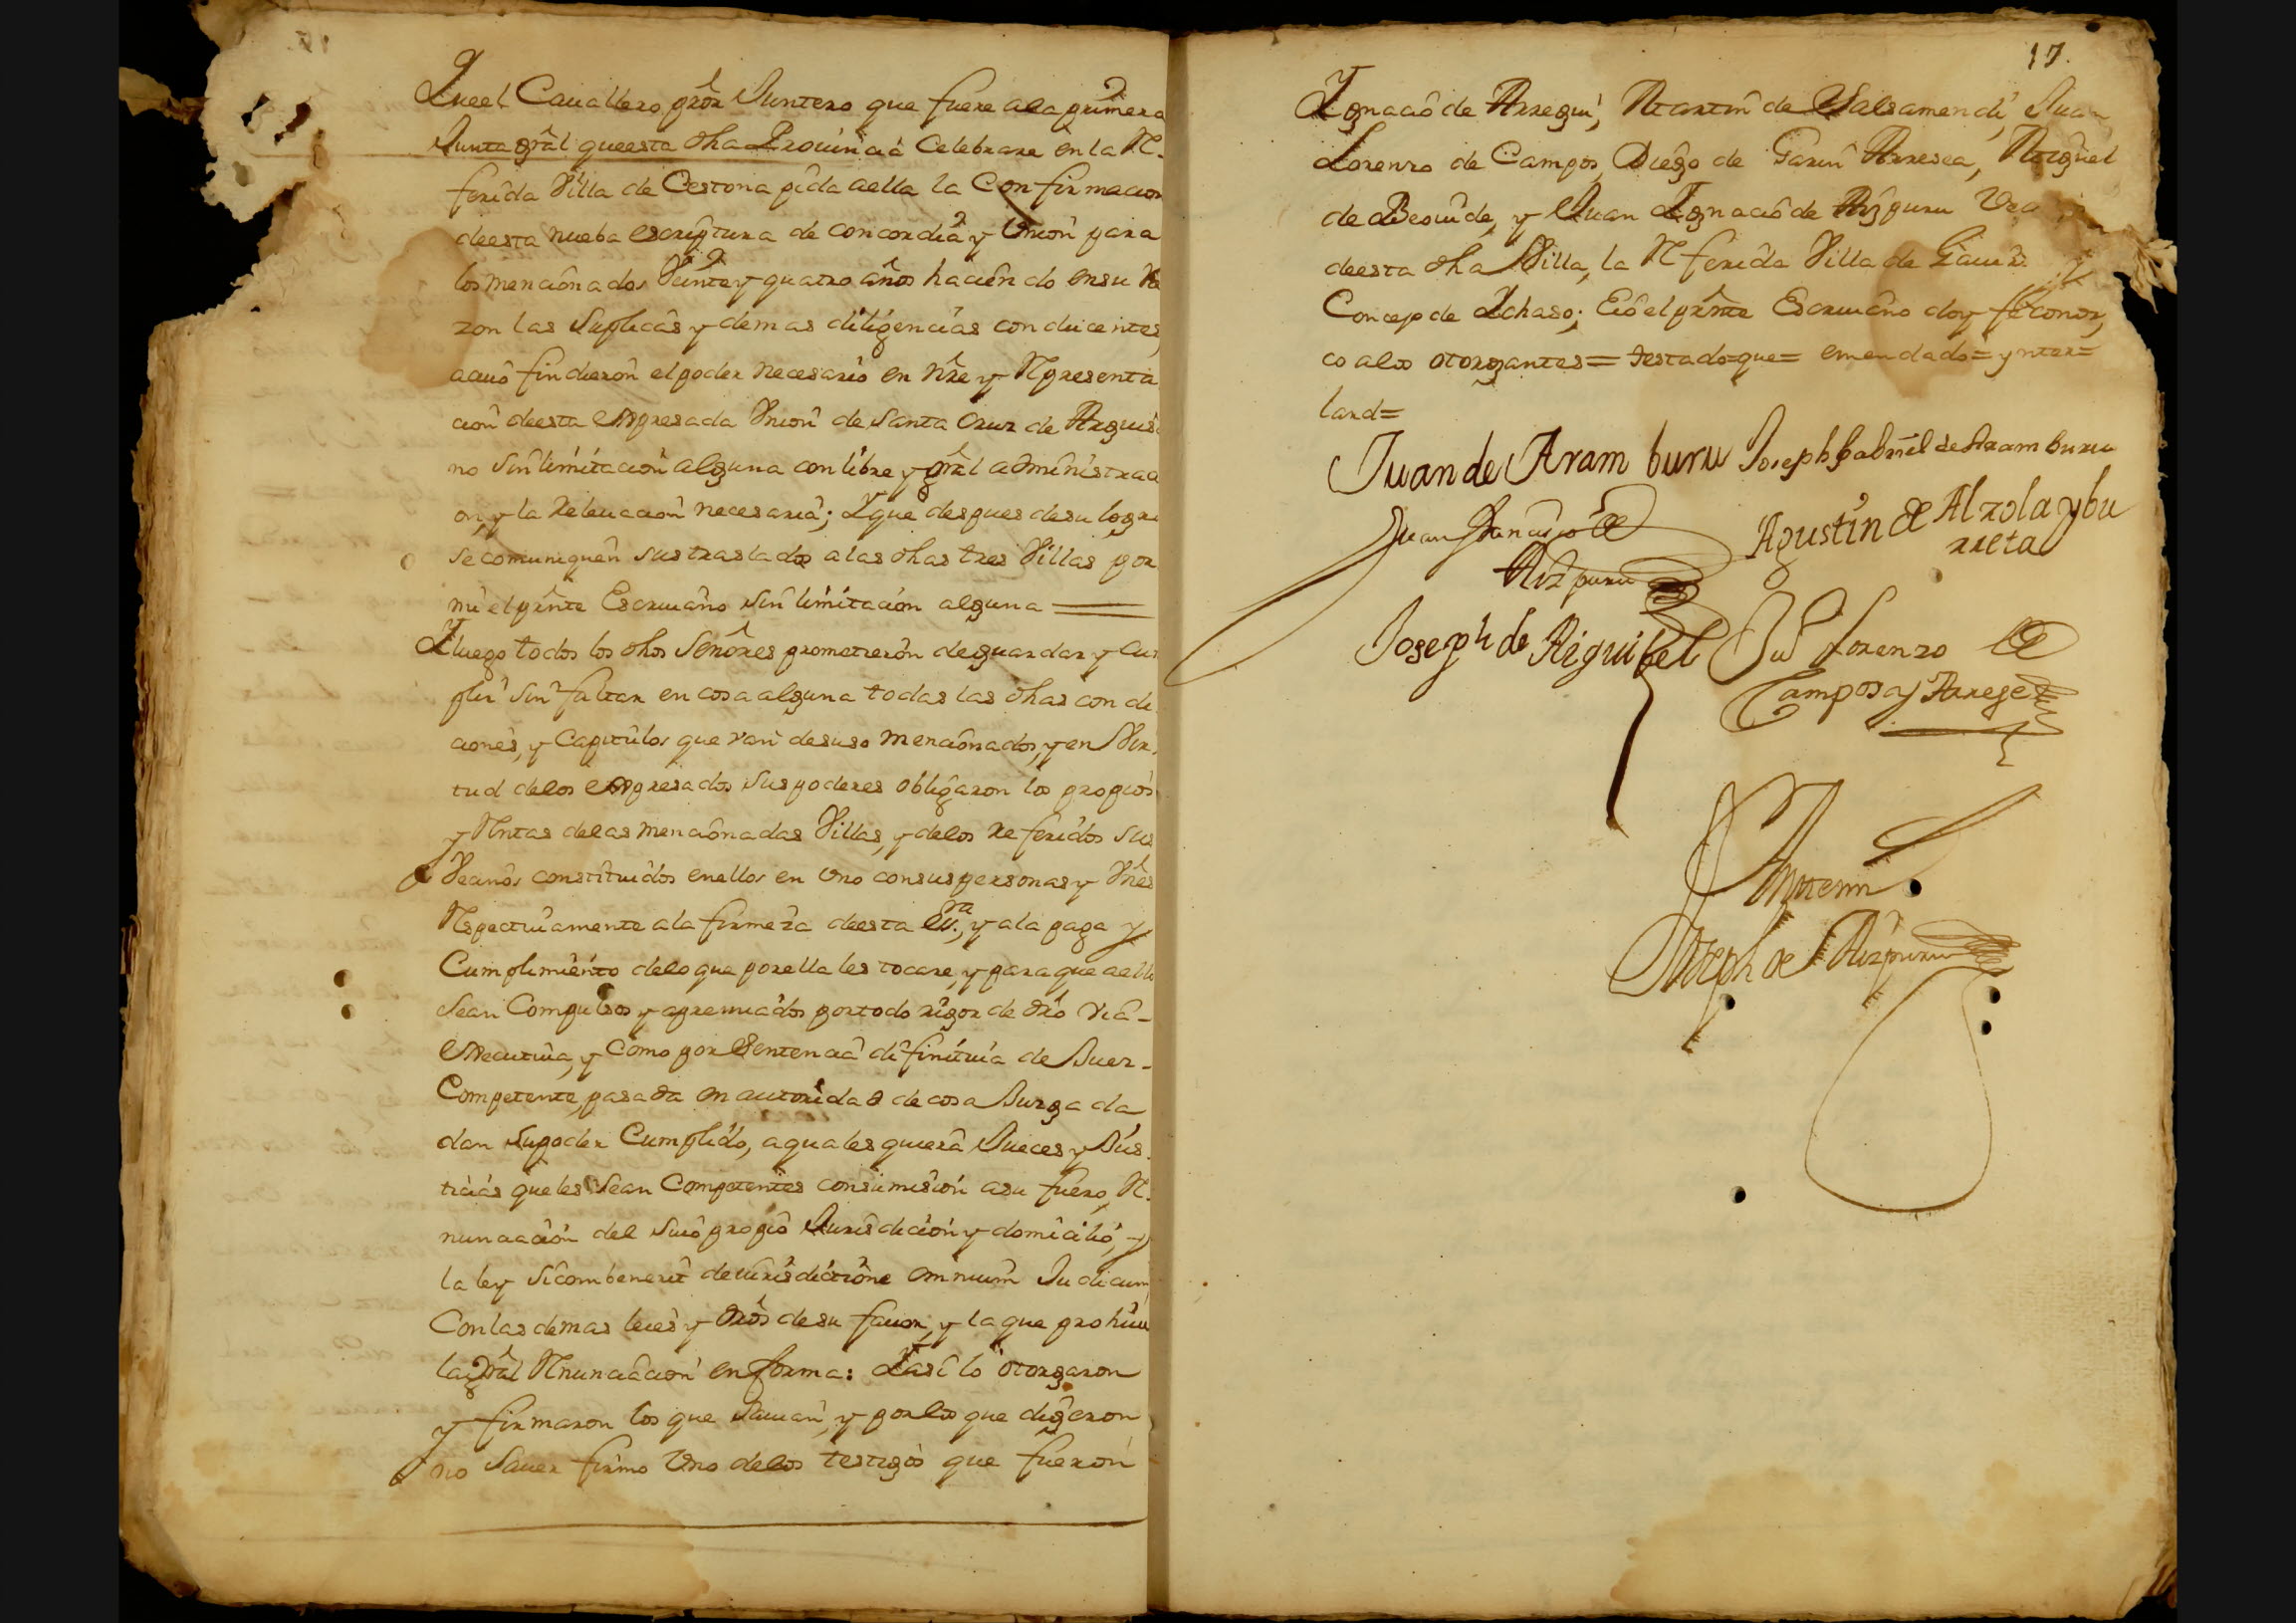 Queel Cauallero prôr Juntero que fuere ala primera
Junta grâl queesta dha Prouinçia Celebrare en la Re
ferida Villa de Cestona pida aella la Confirmacion
deesta nueba escriptura de concordia y Union para
los mencionados Veinte y quatro años haciendo ensu Ra
zon las Suplicas y demas diligencias conducentes,
acuio fin dieron el poder necesario en nre y Representa
cion deesta expresada Union de Santa Cruz de Arguisa
no sin limitacion alguna con libre y grâl administraci
on, y la Releuacion necesaria; Yque despues desu logro
se comuniquen sus traslados alas dhas tres Villas por
mi el prêsnte Escriuano sin limitacion alguna =
Yluego todos los dhos Señores prometieron deguardar y cum
plir sin faltar en cosa alguna todas las dhas condi
ciones, y Capitulos que van desuso mencionados, y en Vir
tud delos expresados sus poderes obligaron los propios
y Rentas delas mencionadas Villas, y delos Referidos sus
Vecinos constituidos enellos en Uno consus personas y Vnes
Respectiuamente ala firmeza deesta Essra, y ala paga y
Cumplimiento delo que porella les tocare, y para que aello
Sean Compulsos y apremiados portodo rigor de dro via
executiua, y Como por Sentencia difinitiuia de Juez
Competente pasada en autoridad de cosa Juzgada
dan su poder Cumplido, aqualesquiera Jueces y Jus
ticias queles Sean Competentes consumision asu fuero, Re
nunciacion del suio propio Jurisdicion y domicilio, y
la ley sicombenerit deiurisdictione omnium Judicum
Conlas demas leies y dros desu fauor, y la que prohiue
la grâl Renunciacion en forma: Yasi lo otorgaron
y firmaron los que Sauian, y porlos que digeron
no Sauer firmo Uno delos testigos que fueron
17.
Ygnacio de Arregui, Martin de Balsamendi, Juan
Lorenzo de Campos, Diego de Garin Arresea, Miguel
de Beouide, y Juan Ygnacio de Aizpuru
deesta dha Villa, la Referida Villa de Gauir
Concejo de Ychaso; Eio el prêsnte Escriuano doy fe conoz
co alos otorgantes = testado = que = emendado = ynter =
land =
Juan de Aramburu Joseph Gabriel de Aramburu
Juan Francisco de
Aizpuru
Agustin de Alzola y bu
rreta
Joseph de Aiguibel Ju Lorenzo de
Campos y Arrese
Antemi
Joseph de Aizpuru